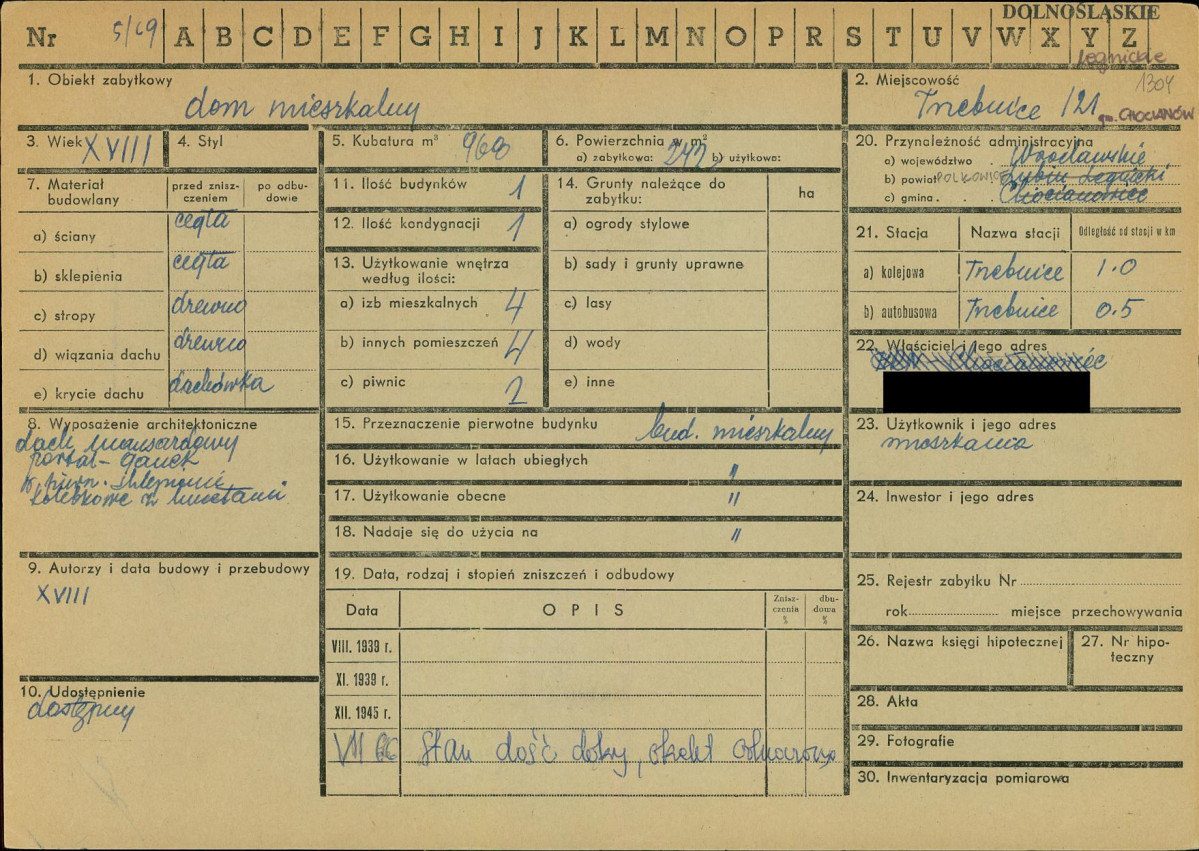 DOLNOŚLĄSKIE
Nr 5/69 A B C D E F G H I J K L M N O P R S T U V W X Y Z
legnickie
1304
1. Obiekt zabytkowy
dom mieszkalny
2. Miejscowość
Trzebnice 121
gm. CHOCIANÓW
3. Wiek XVIII
4. Styl
5. Kubatura m³ 968
6. Powierzchnia w m²
a) zabytkowa: 242 b) użytkowo:
7. Materiał budowlany
przed zniszczeniem
po odbudowie
a) ściany cegła
b) sklepienia cegła
c) stropy drewno
d) wiązania dachu drewno
e) krycie dachu dachówka
8. Wyposażenie architektoniczne
dach mansardowy
portal - ganek
w piwn. sklepienie
kolebkowe z lunetami
9. Autorzy i data budowy i przebudowy
XVIII
10. Udostępnienie
dostępny
11. Ilość budynków 1
12. Ilość kondygnacji 1
13. Użytkowanie wnętrza
według ilości:
a) izb mieszkalnych 4
b) innych pomieszczeń 4
c) piwnic 2
14. Grunty należące do
zabytku:
ha
a) ogrody stylowe
b) sady i grunty uprawne
c) lasy
d) wody
e) inne
15. Przeznaczenie pierwotne budynku bud. mieszkalny
16. Użytkowanie w latach ubiegłych "
17. Użytkowanie obecne "
18. Nadaje się do użycia na "
19. Data, rodzaj i stopień zniszczeń i odbudowy
Data
OPIS
Zniszczenia %
dbudowa %
VIII. 1939 r.
XI. 1939 r.
XII. 1945 r.
VII 66 Stan dość dobry, obiekt
20. Przynależność administracyjna
a) województwo . Wrocławskie
b) powiat POLKOWICE Lubin Legnicki
c) gmina . . Chocianowiec
21. Stacja
Nazwa stacji
Odległość od stacji w km
a) kolejowa Trzebnice 1.0
b) autobusowa Trzebnice 0.5
22. Właściciel i jego adres
Chocianowiec
23. Użytkownik i jego adres
mieszkania
24. Inwestor i jego adres
25. Rejestr zabytku Nr
rok miejsce przechowywania
26. Nazwa księgi hipotecznej
27. Nr hipoteczny
28. Akta
29. Fotografie
30. Inwentaryzacja pomiarowa